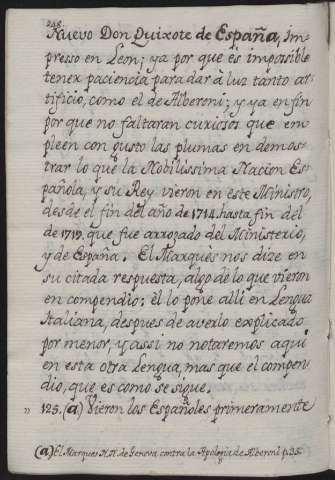 208.
Nuevo Don Quixote de España, im-
presso en Leon; ya por que es imposible
tener paciencia para dàr à luz tanto ar-
tificio, como el de Alberoni; y ya en fin
por que no faltaran curiosos que em-
pleen con gusto las plumas en demos-
trar lo que la Nobilissima Nacion Es-
pañola, y su Rey vieron en este Ministro,
desde el fin del año de 1714. hasta fin del
de 1719. que fue arrojado del Ministerio,
y de España. El Marquès nos dize en
su citada respuesta, algo de lo que vieron
en compendio: èl lo pone alli en Lengua
Italiana, despues de averlo explicado
por menor, y assi no notaremos aqui
en esta otra Lengua, mas que el compen-
dio, que es como se sigue.
" 123. (a) Vieron los Españoles primeramente
(a) El Marques N.N. de Genova contra la Apologia de Alberoni p.35.